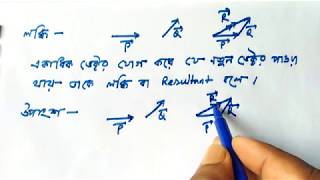 লব্ধি — P Q P Q R
একাধিক ভেক্টর যোগ করে যে নতুন ভেক্টর পাওয়া
যায় তাকে লব্ধি বা Resultant বলে।
উপাংশ — P Q P Q R